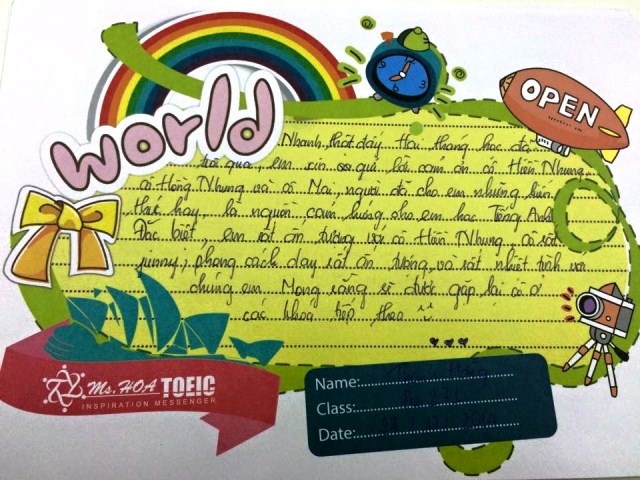 world
OPEN
Nhanh thật đấy. Hai tháng học đã
trôi qua, em xin gửi lời cảm ơn cô Hiền Nhung,
cô Hồng Nhung và cô Mai, người đã cho em những kiến
thức hay, là nguồn cảm hứng cho em học Tiếng Anh.
Đặc biệt, em rất ấn tượng với cô Hiền Nhung, cô rất
funny, phong cách dạy rất ấn tượng, và rất nhiệt tình với
chúng em. Mong rằng sẽ được gặp lại cô ở
các khoá tiếp theo
Ms. HOA TOEIC
INSPIRATION MESSENGER
Name:
Class:
Date: